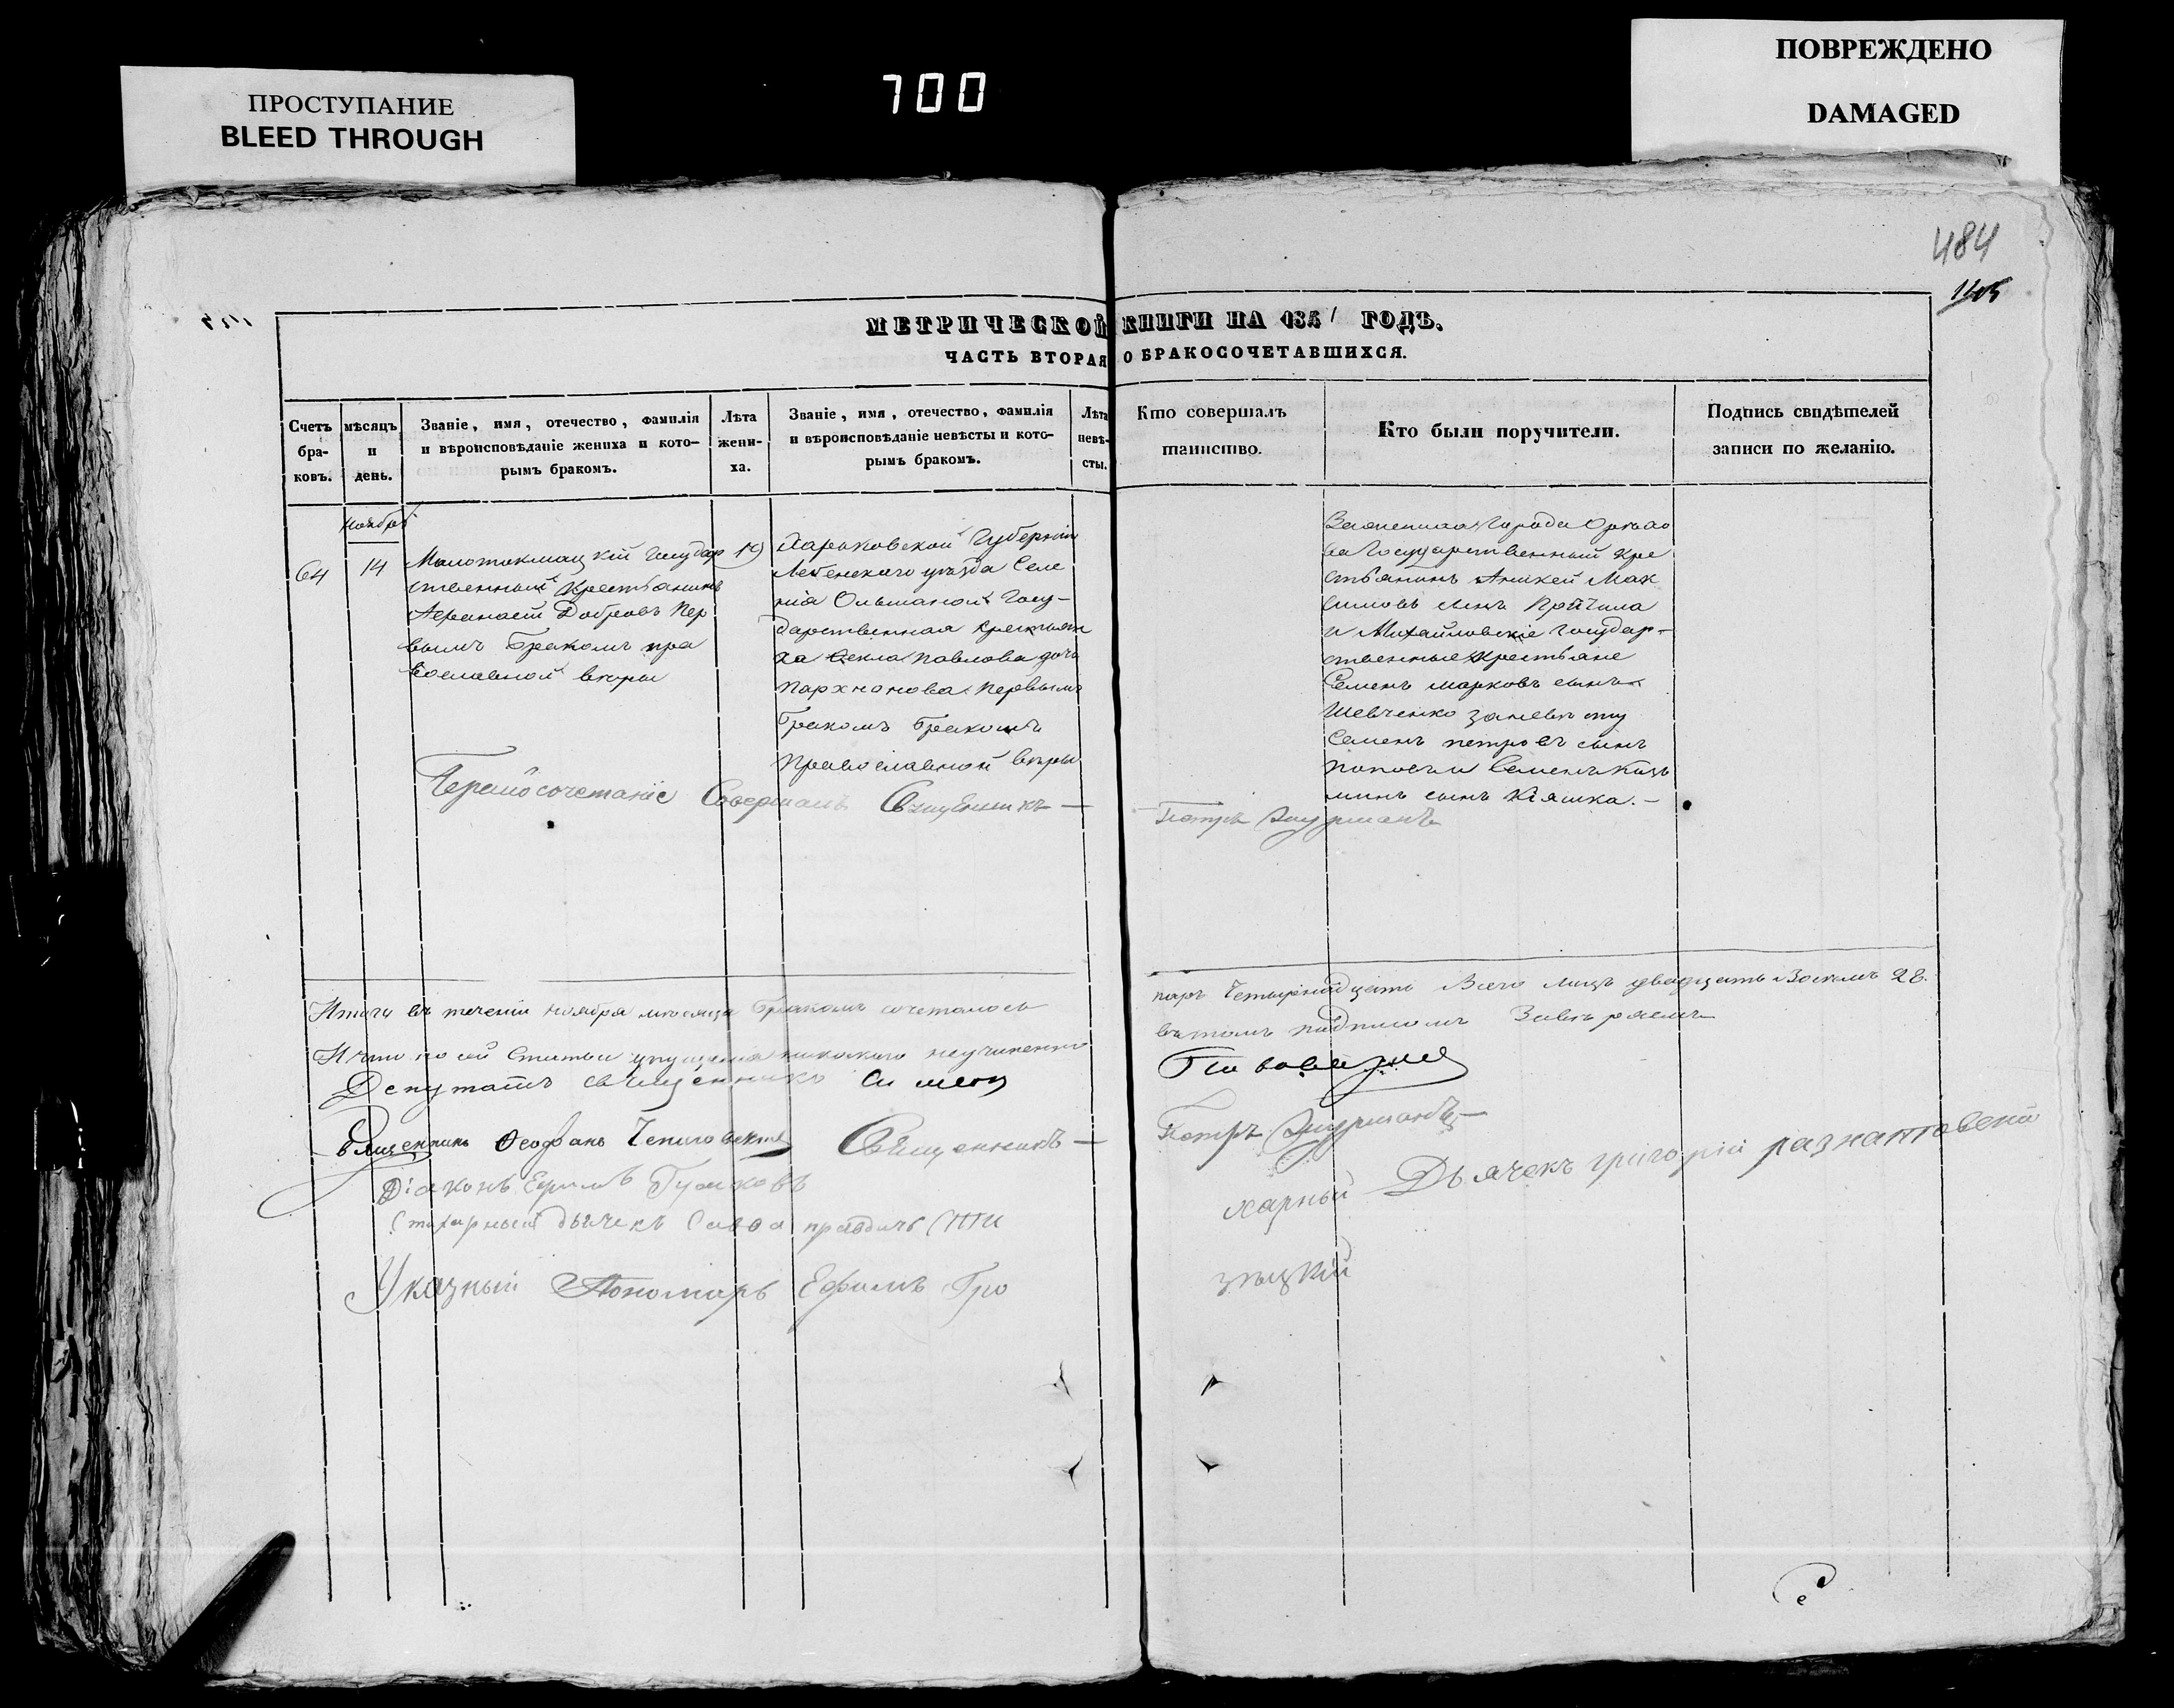 ПРОСТУПАНИЕ
BLEED THROUGH
700
ПОВРЕЖДЕНО
DAMAGED
484
1105
МЕТРИЧЕСКОЙ КНИГИ НА 1851 ГОДЪ.
ЧАСТЬ ВТОРАЯ О БРАКОСОЧЕТАВШИХСЯ.
Счетъ
бра-
ковъ.
мѣсяцъ
и
день.
Званіе, имя, отечество, фамилія
и вѣроисповѣданіе жениха и кото-
рымъ бракомъ.
Лѣта
жени-
ха.
Званіе, имя, отечество, фамилія
и вѣроисповѣданіе невѣсты и кото-
рымъ бракомъ.
Лѣта
невѣ-
сты.
Кто совершалъ
таинство.
Кто были поручители.
Подпись свидѣтелей
записи по желанію.
64
Ноября
14
Малотокмацкій Государ
ственный Крестьянинъ
Афанасій Добровъ Пер
вымъ Бракомъ пра
вославной вѣры
19
Харьковской Губерніи
уѣзда Селе
нія Ольшаной Госу-
дарственная крестьян
ка Ѳекла Павлова дочь
Пархомова Первымъ
Бракомъ Бракомъ
Православной вѣры
Города Орѣхо
ва Государственный Кре
стьянинъ Аникей Мак
симовъ сынъ
и Михайловскіе государ-
ственные Крестьяне
Семенъ Марковъ сынъ
Шевченко за невѣсту
Семенъ Петровъ сынъ
Семенъ Кузь
минъ сынъ Кіяшка.-
Бракосочетаніе Совершалъ Священникъ —
Петръ
Итого въ теченіи ноября мѣсяца Бракомъ сочеталось
паръ Четырнадцать Всего лицъ двадцать Восемь 28.
И что по сей Статьи упущенія никакого неучинено
въ томъ подписомъ Завѣряемъ
Депутатъ священникъ Симеон
Священникъ Ѳеофанъ
Священникъ —
Петръ
Діаконъ Ефимъ
Стихарный дьячекъ Савва
харный Дьячекъ григорій
Указный Пономарь Ефимъ Гро
зѣцкій